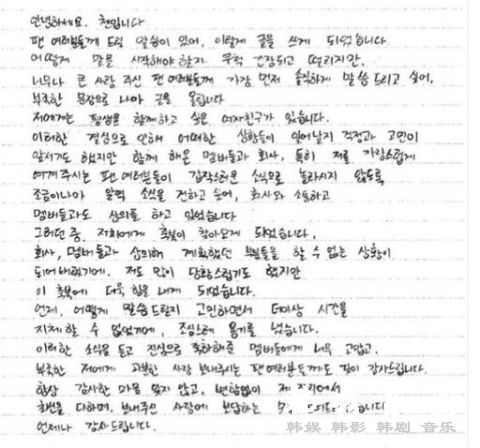 안녕하세요. 첸입니다
팬 여러분들께 드릴 말씀이 있어, 이렇게 글을 쓰게 되었습니다.
어떻게 말을 시작해야 할지 무척 긴장되고 떨리지만,
너무나 큰 사랑 주신 팬 여러분들께 가장 먼저 솔직하게 말씀드리고 싶어,
부족한 문장으로 나마 글을 올립니다
저에게는 평생을 함께하고 싶은 여자친구가 있습니다.
이러한 결심으로 인해 어떠한 상황들이 일어날지 걱정과 고민이
앞서기도 했지만 함께 해온 멤버들과 회사, 특히 저를 자랑스럽게
여겨주시는 팬 여러분들이 갑작스러운 소식으로 놀라시지 않도록
조금이나마 일찍 소식을 전하고 싶어, 회사와 소통하고
멤버들과도 상의를 하고 있었습니다
그러던 중, 저희에게 축복이 찾아오게 되었습니다.
회사, 멤버들과 상의해 계획했던 부분들을 할 수 없는 상황이
되어버렸기에, 저도 많이 당황스럽기도 했지만
이 축복에 더욱 힘을 내게 되었습니다.
언제, 어떻게 말씀드릴지 고민하면서 더이상 시간을
지체할 수 없었기에, 조심스레 용기를 냈습니다.
이러한 소식을 듣고 진심으로 축하해준 멤버들에게 너무 고맙고,
부족한 저에게 과분한 사랑 보내주시는 팬 여러분들께도 깊이 감사드립니다.
항상 감사한 마음 잊지 않고, 변함없이 제 자리에서
최선을 다하며, 보내주신 사랑에 보답하는
언제나 감사드립니다.
韩娱 韩影 韩剧 音乐